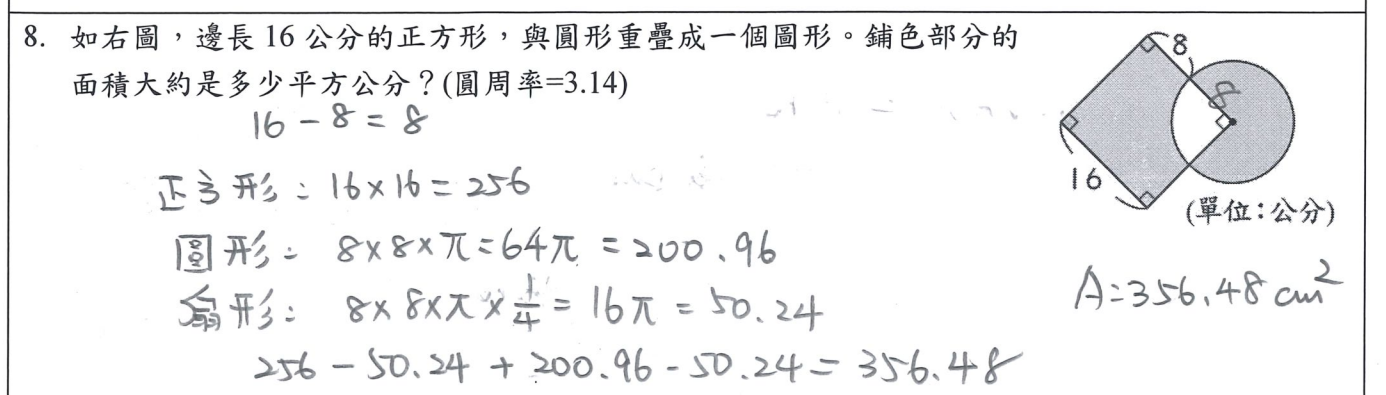 8. 如右圖，邊長 16 公分的正方形，與圓形重疊成一個圖形。鋪色部分的
面積大約是多少平方公分？(圓周率=3.14)
16 - 8 = 8
正方形：16×16 = 256
圓形：8×8×π=64π = 200.96
扇形：8×8×π×1/4 = 16π = 50.24
256 - 50.24 + 200.96 - 50.24 = 356.48
8
8
16
(單位：公分)
A：356.48 cm²